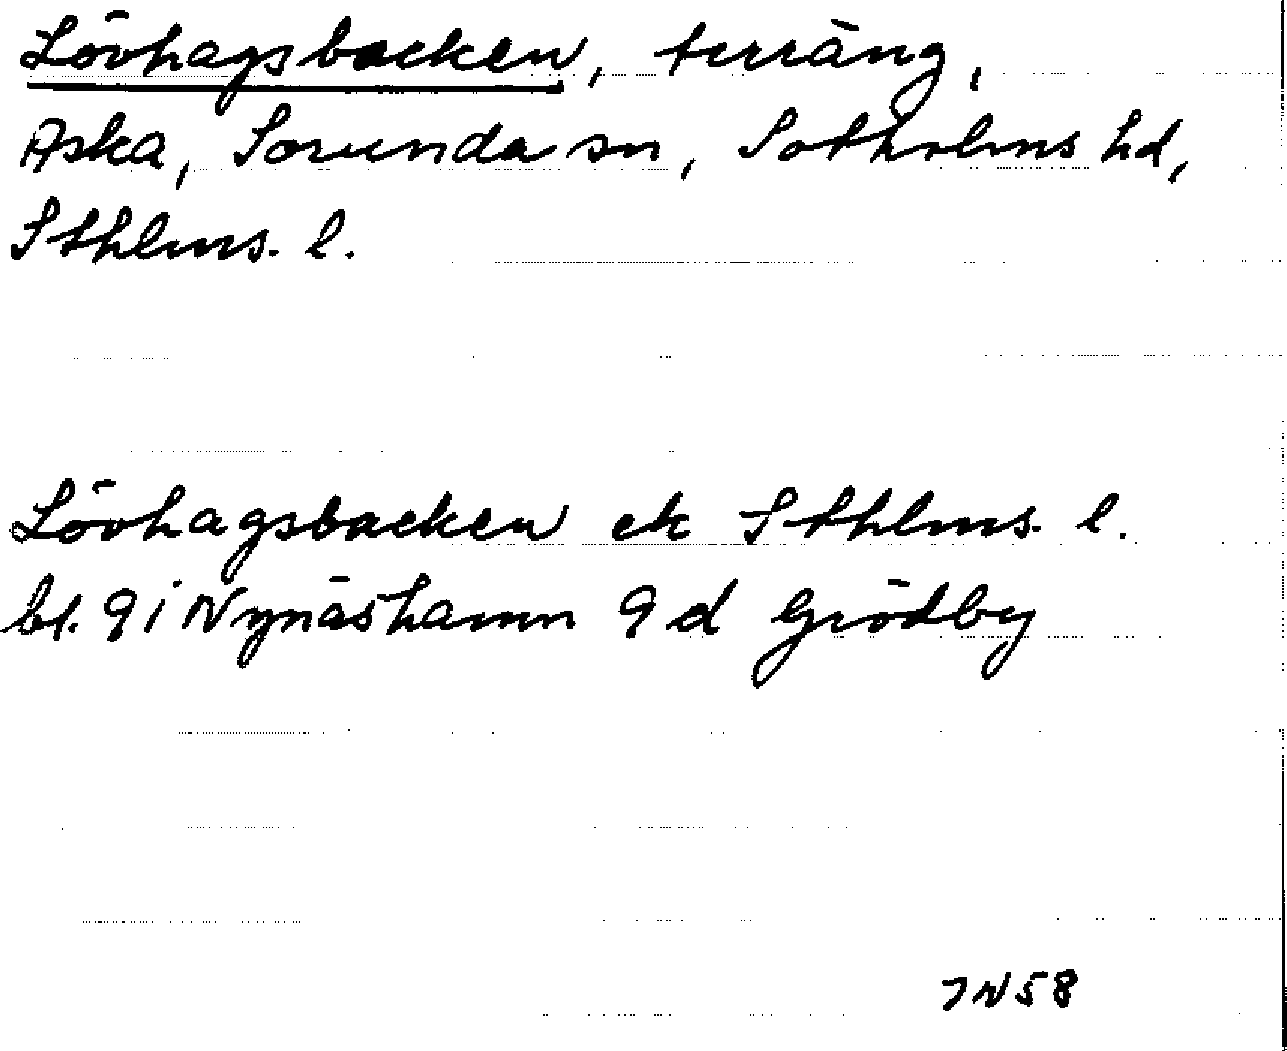 Lövhagsbacken, terräng,
Aska, Sorunda sn, Sotholms hd,
Sthlms. l.
Lövhagsbacken ek Sthlms. l.
bl. 9 i Nynäshamn 9 d Grödby
JN58